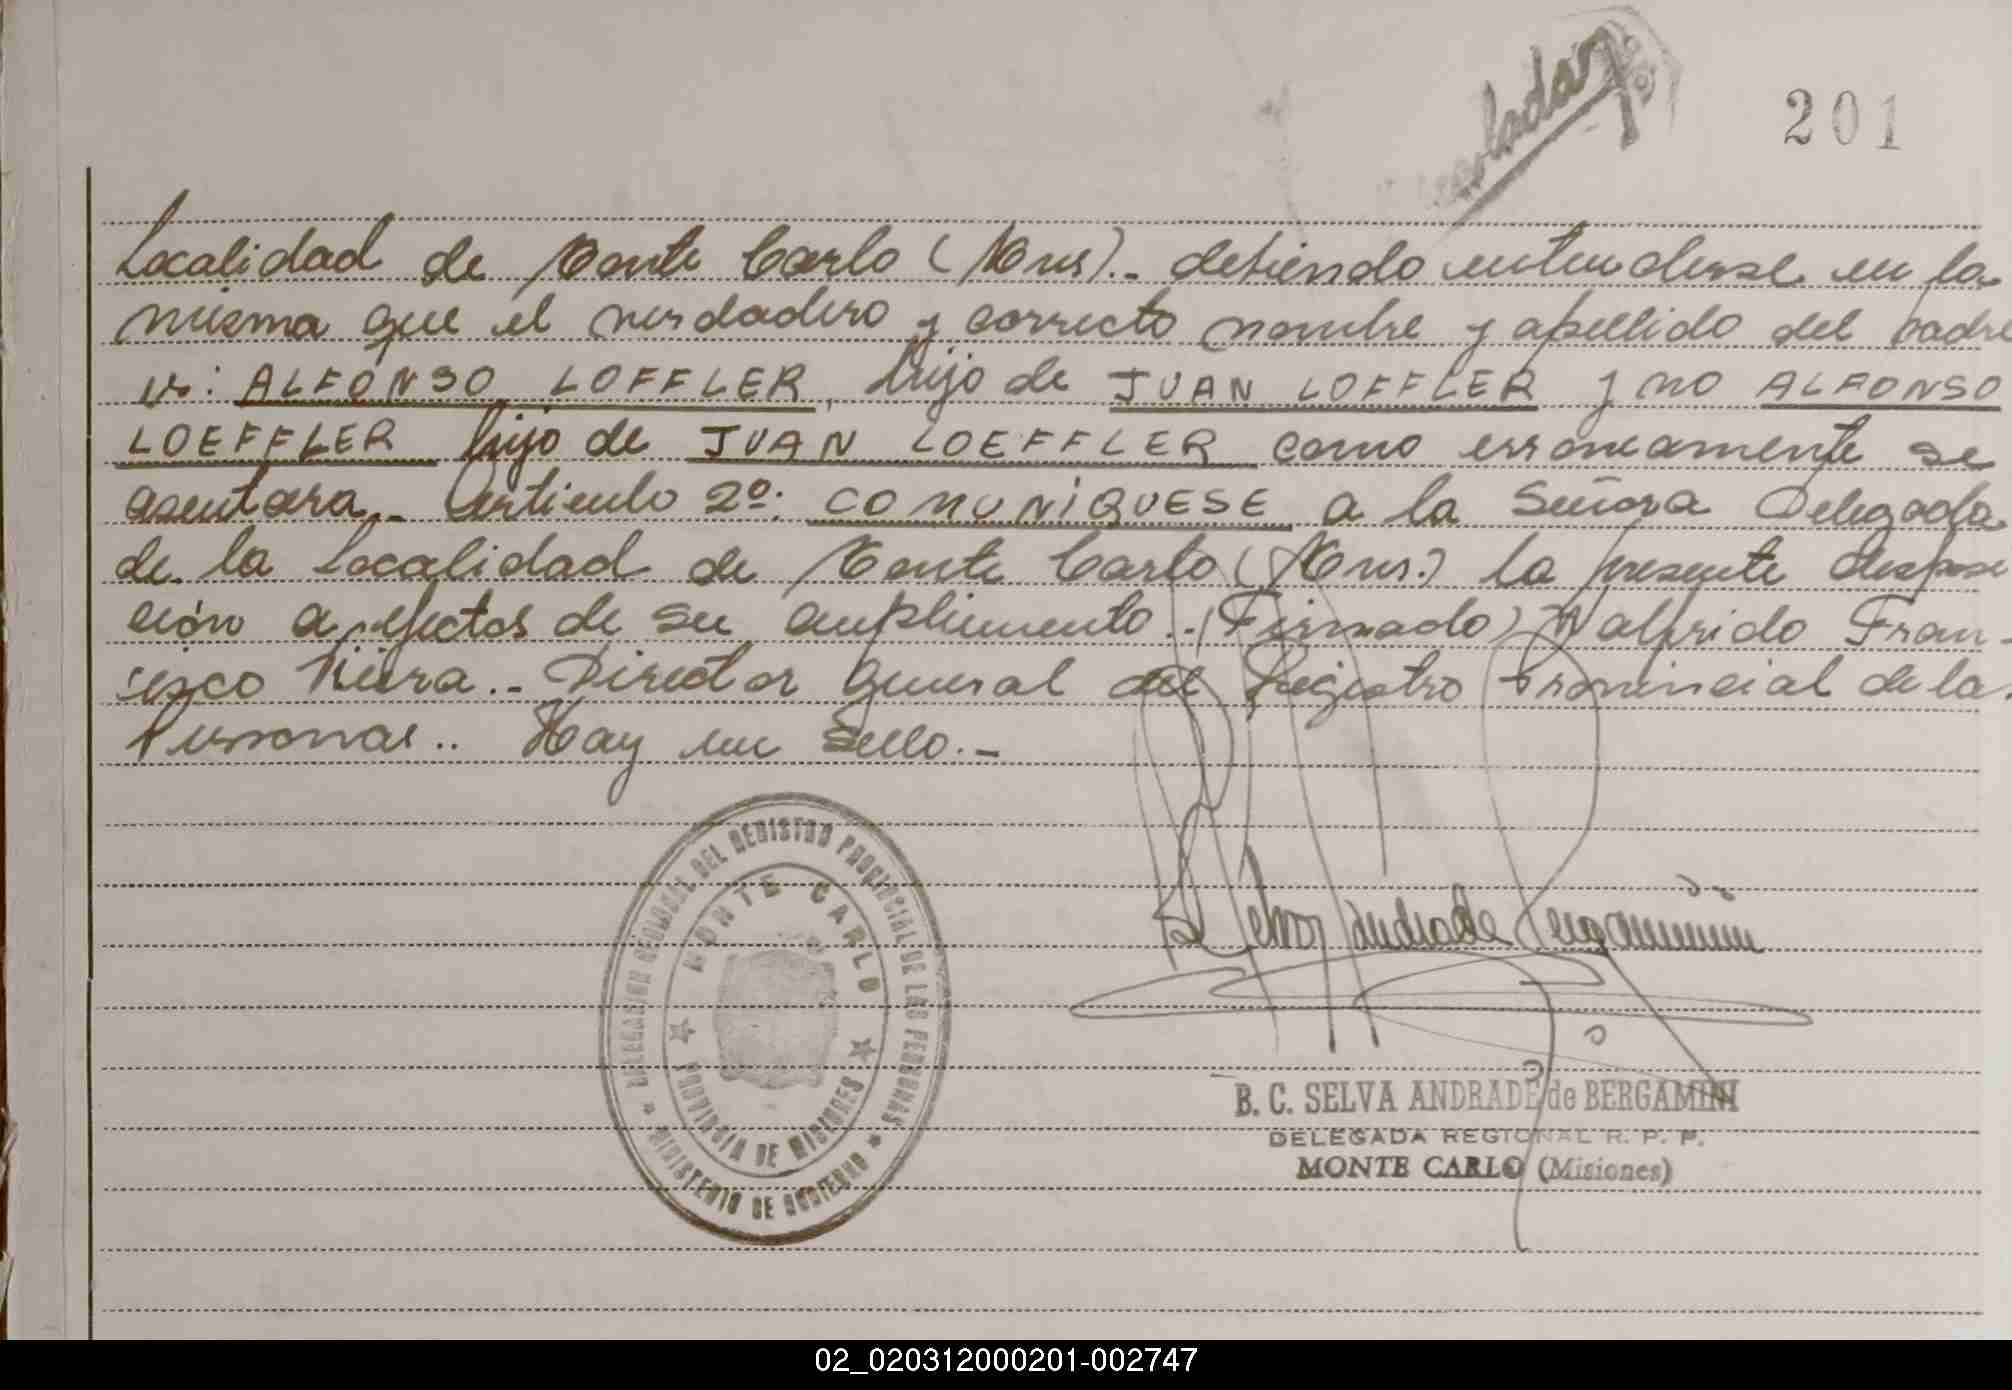 201
Localidad de Monte Carlo (Mnes).- debiendo entenderse en la
misma que el verdadero y correcto nombre y apellido del padre
es: ALFONSO LOFFLER, hijo de JUAN LOFFLER y no ALFONSO
LOEFFLER hijo de JUAN LOEFFLER como erroneamente se
asentara.- Artículo 2º: COMUNIQUESE a la Señora Delegada
de la Localidad de Monte Carlo (Mnes.) la presente dispose
ción a efectos de su cumplimiento.- (Firmado) Walfrido Fran-
cisco Vieira.- Director General del Registro Provincial de las
Personas.. Hay un Sello.-
DELEGACION REGIONAL DEL REGISTRO PROVINCIAL DE LAS PERSONAS
MINISTERIO DE GOBIERNO
MONTE CARLO
PROVINCIA DE MISIONES
B. C. Selva Andrade Bergamini
B. C. SELVA ANDRADE de BERGAMINI
DELEGADA REGIONAL R. P. P.
MONTE CARLO (Misiones)
02_020312000201-002747